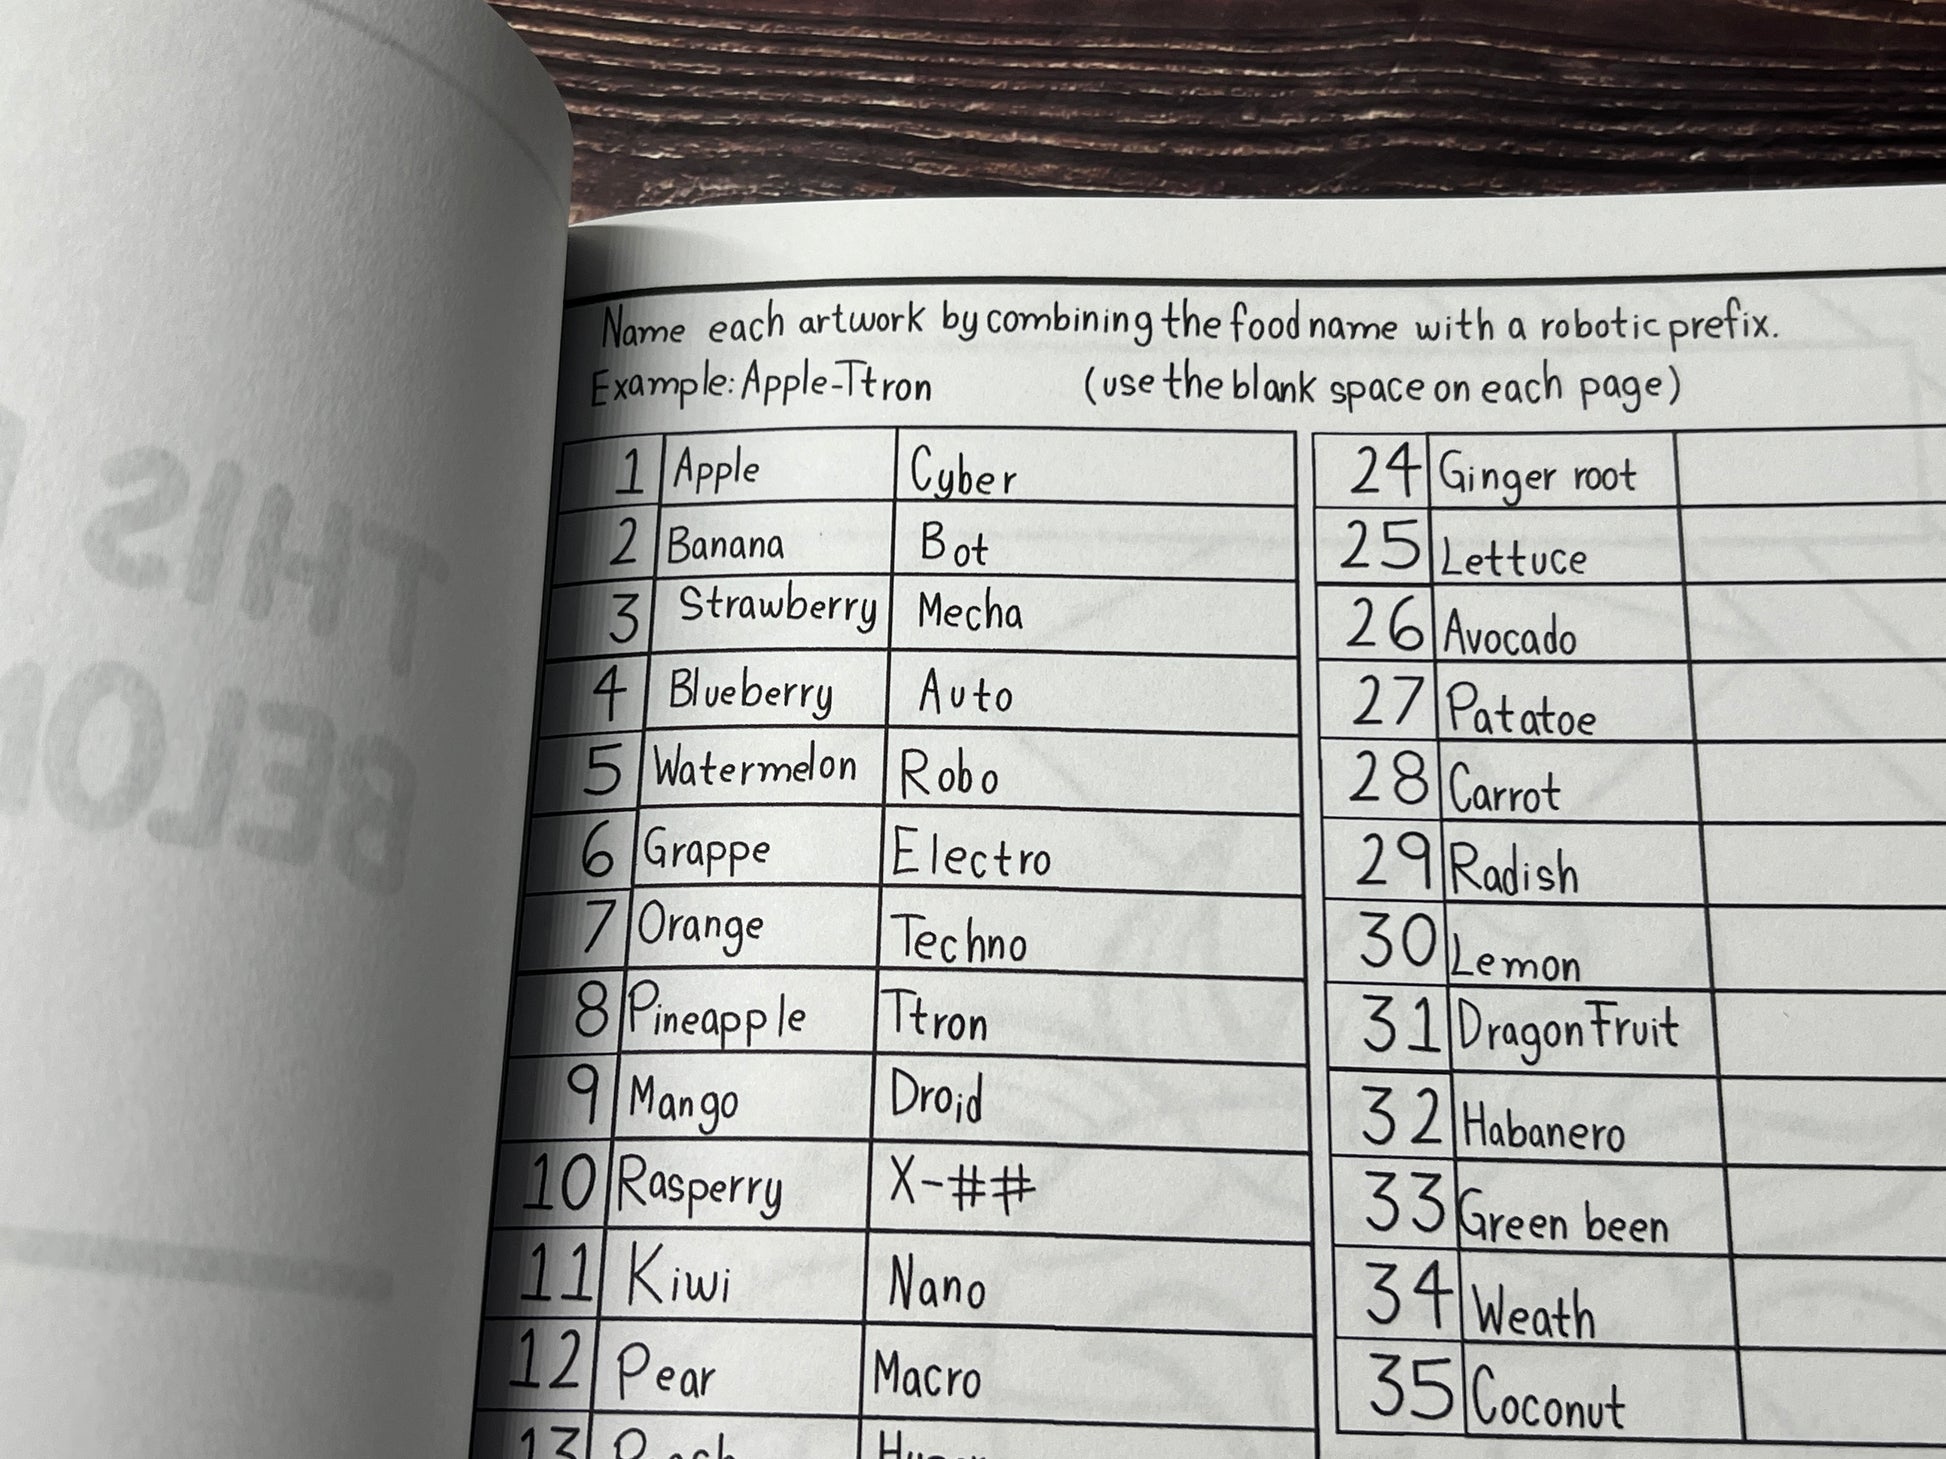 THIS
BELON
Name each artwork by combining the food name with a robotic prefix.
Example: Apple-Ttron (use the blank space on each page)
1 Apple Cyber
2 Banana Bot
3 Strawberry Mecha
4 Blueberry Auto
5 Watermelon Robo
6 Grappe Electro
7 Orange Techno
8 Pineapple Ttron
9 Mango Droid
10 Rasperry X-##
11 Kiwi Nano
12 Pear Macro
13
24 Ginger root
25 Lettuce
26 Avocado
27 Patatoe
28 Carrot
29 Radish
30 Lemon
31 Dragon Fruit
32 Habanero
33 Green been
34 Weath
35 Coconut